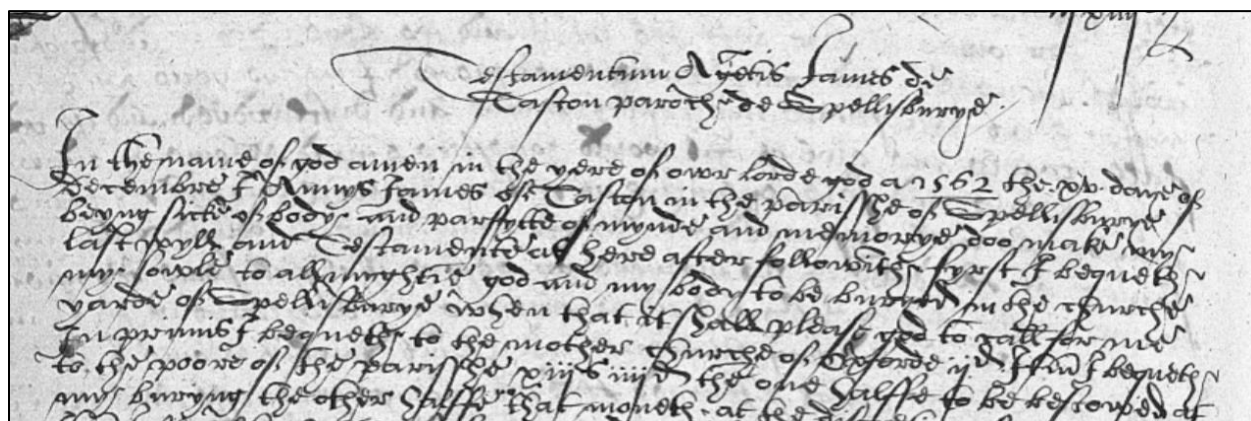 Testamentum Agnetis James de
Taston paroch de Spellisburye
In the name of god amen in the yere of owr lorde god a 1562 the xv daye of
decembre I Annys James of Taston in the parisshe of Spellisburye
beyng sicke of body and parfytte of mynde and memorye doo make my
last wyll and Testamente as here after followith fyrst I bequeth
my sowle to allmyghtie god and my body to be buryed in the churche
yarde of Spellisburye when that it shall please god to call for me
In primis I bequeth to the mother churche of Oxforde iid Itm I bequeth
to the poore of the parisshe xiijs iiijd the one halffe to be bestowed at
my buryng the other halffe that moneth at the